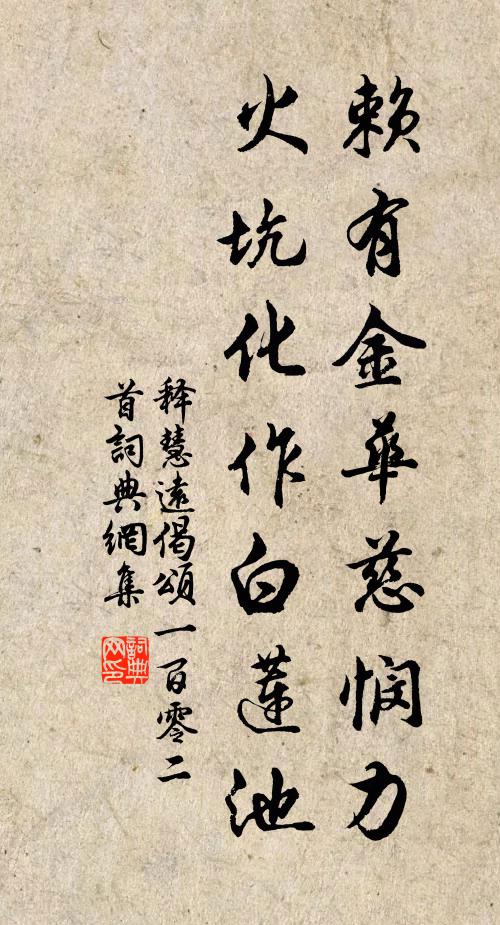 赖有金華慈憫力
火坑化作白蓮池
释慧遠偈頌一百零二
首詞典網集
詞典
网印